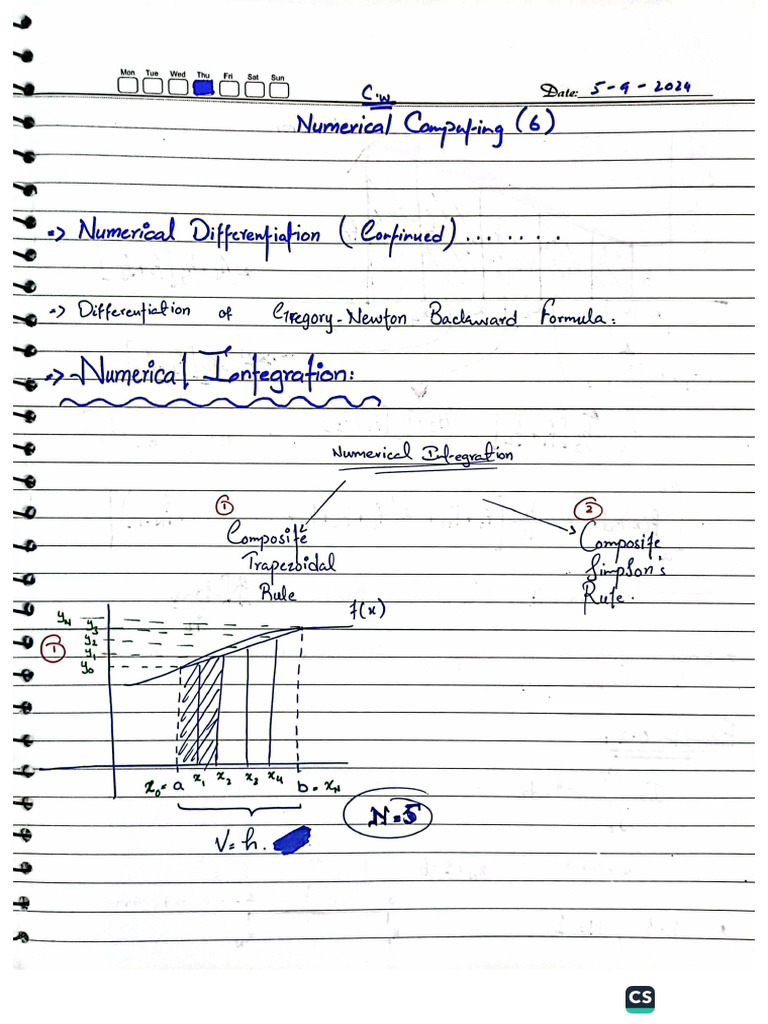 Mon Tue Wed Thu Fri Sat Sun
C.W
Date: 5-9-2024
Numerical Computing (6)
=> Numerical Differentiation (Continued) ........
=> Differentiation of Gregory-Newton Backward Formula:
=> Numerical Integration:
Numerical Integration
① ②
Composite Trapezoidal Rule
Composite Simpson's Rule.
①
f(x)
yN y3
y2
y1
y0
x0 = a x1 x2 x3 x4 b = xN
N=5
V=h.
CS